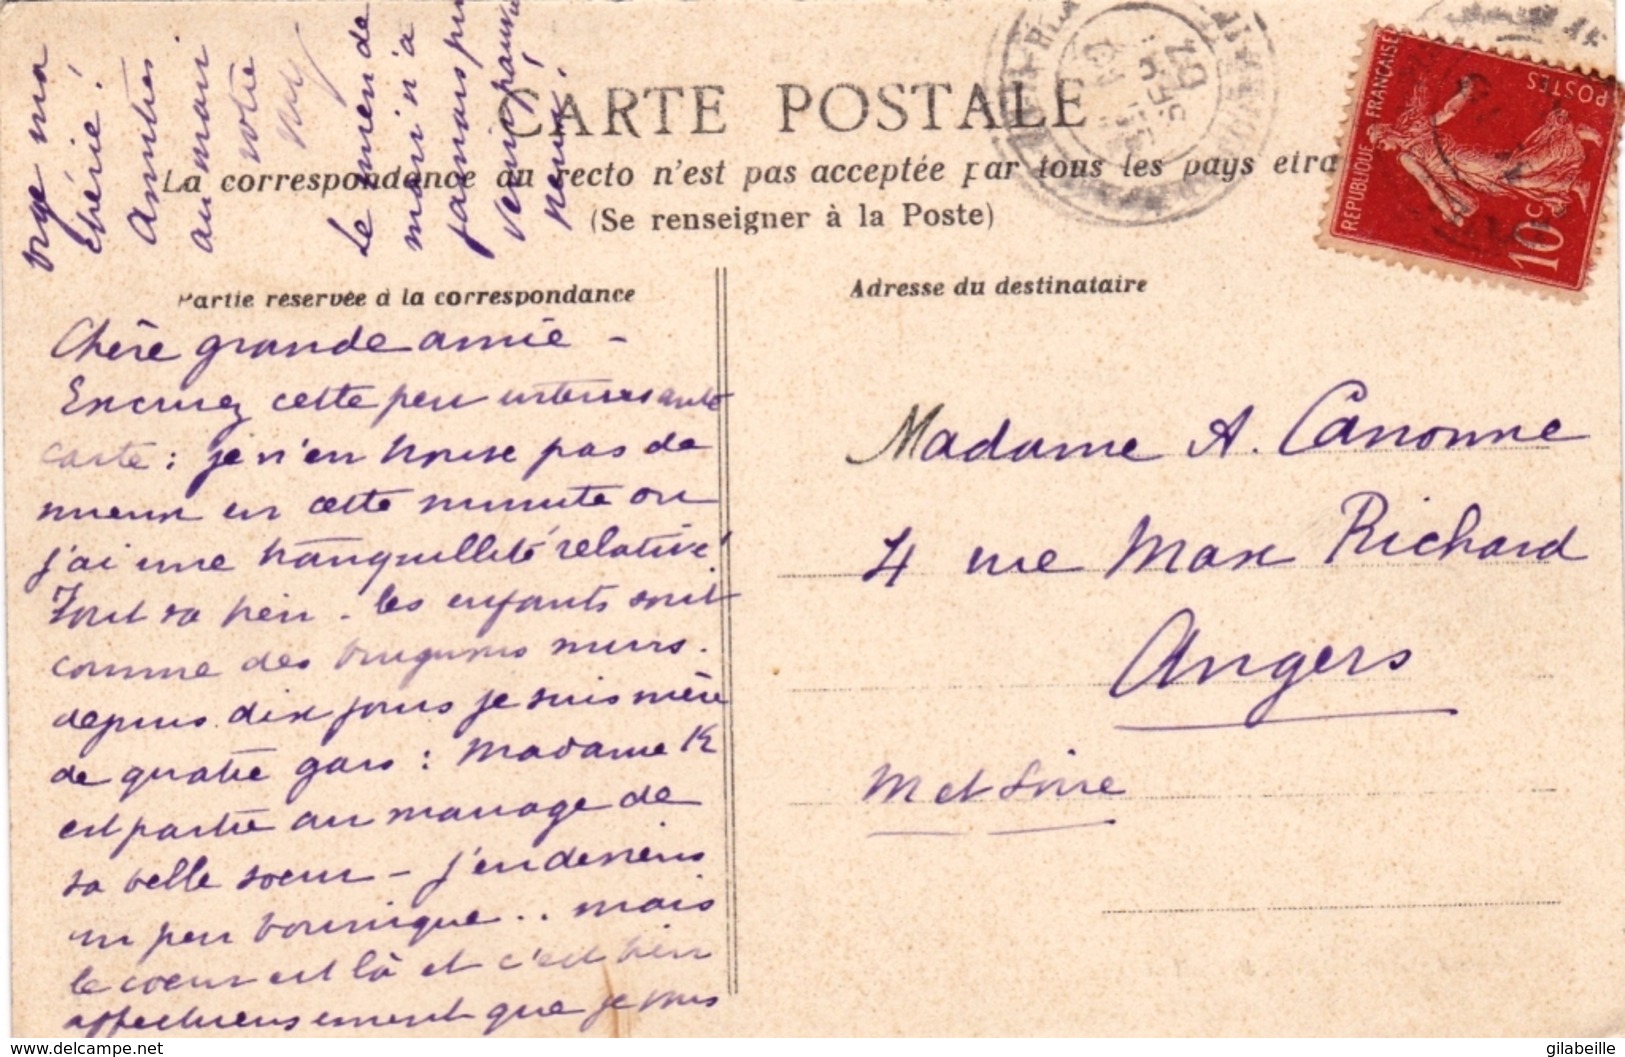 CARTE POSTALE
La correspondance au recto n'est pas acceptée par tous les pays etra
(Se renseigner à la Poste)
Partie réservée à la correspondance
Chère grande amie -
Excusez cette peu interessante
carte : je n'en trouve pas de
mieux en cette minute où
j'ai une tranquillité relative !
Tout va bien - les enfants sont
comme des brugnons murs.
depuis dix jours je suis mère
de quatre gars : Madame K
est partie au mariage de
sa belle soeur - j'en deviens
un peu bourrique .. mais
le coeur est là et c'est bien
affectueusement que je vous
ma
chérie !
Amitiés
au mari
votre
Le mien de
mari n'a
jamais pu
venir,
Adresse du destinataire
Madame A. Canonne
4 rue Max Richard
Angers
M et Loire
REPUBLIQUE FRANÇAISE
POSTES
10 c.
https://www.delcampe.net
gilabeille